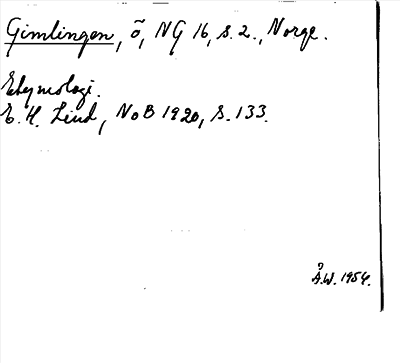 Gimlingen, ö, NG 16, s. 2., Norge.
Etymologi.
E. H. Lind, NoB 1920, s. 133.
Å.W. 1954.